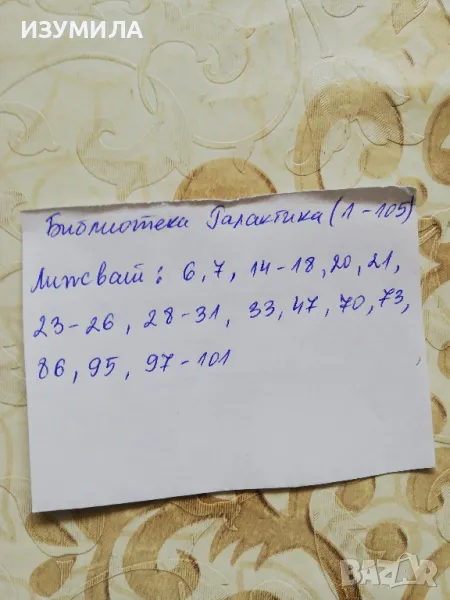 ИЗУМИЛА
Библиотека Галактика (1-105)
Липсват: 6, 7, 14-18, 20, 21,
23-26, 28-31, 33, 47, 70, 73,
86, 95, 97-101
BAZAR